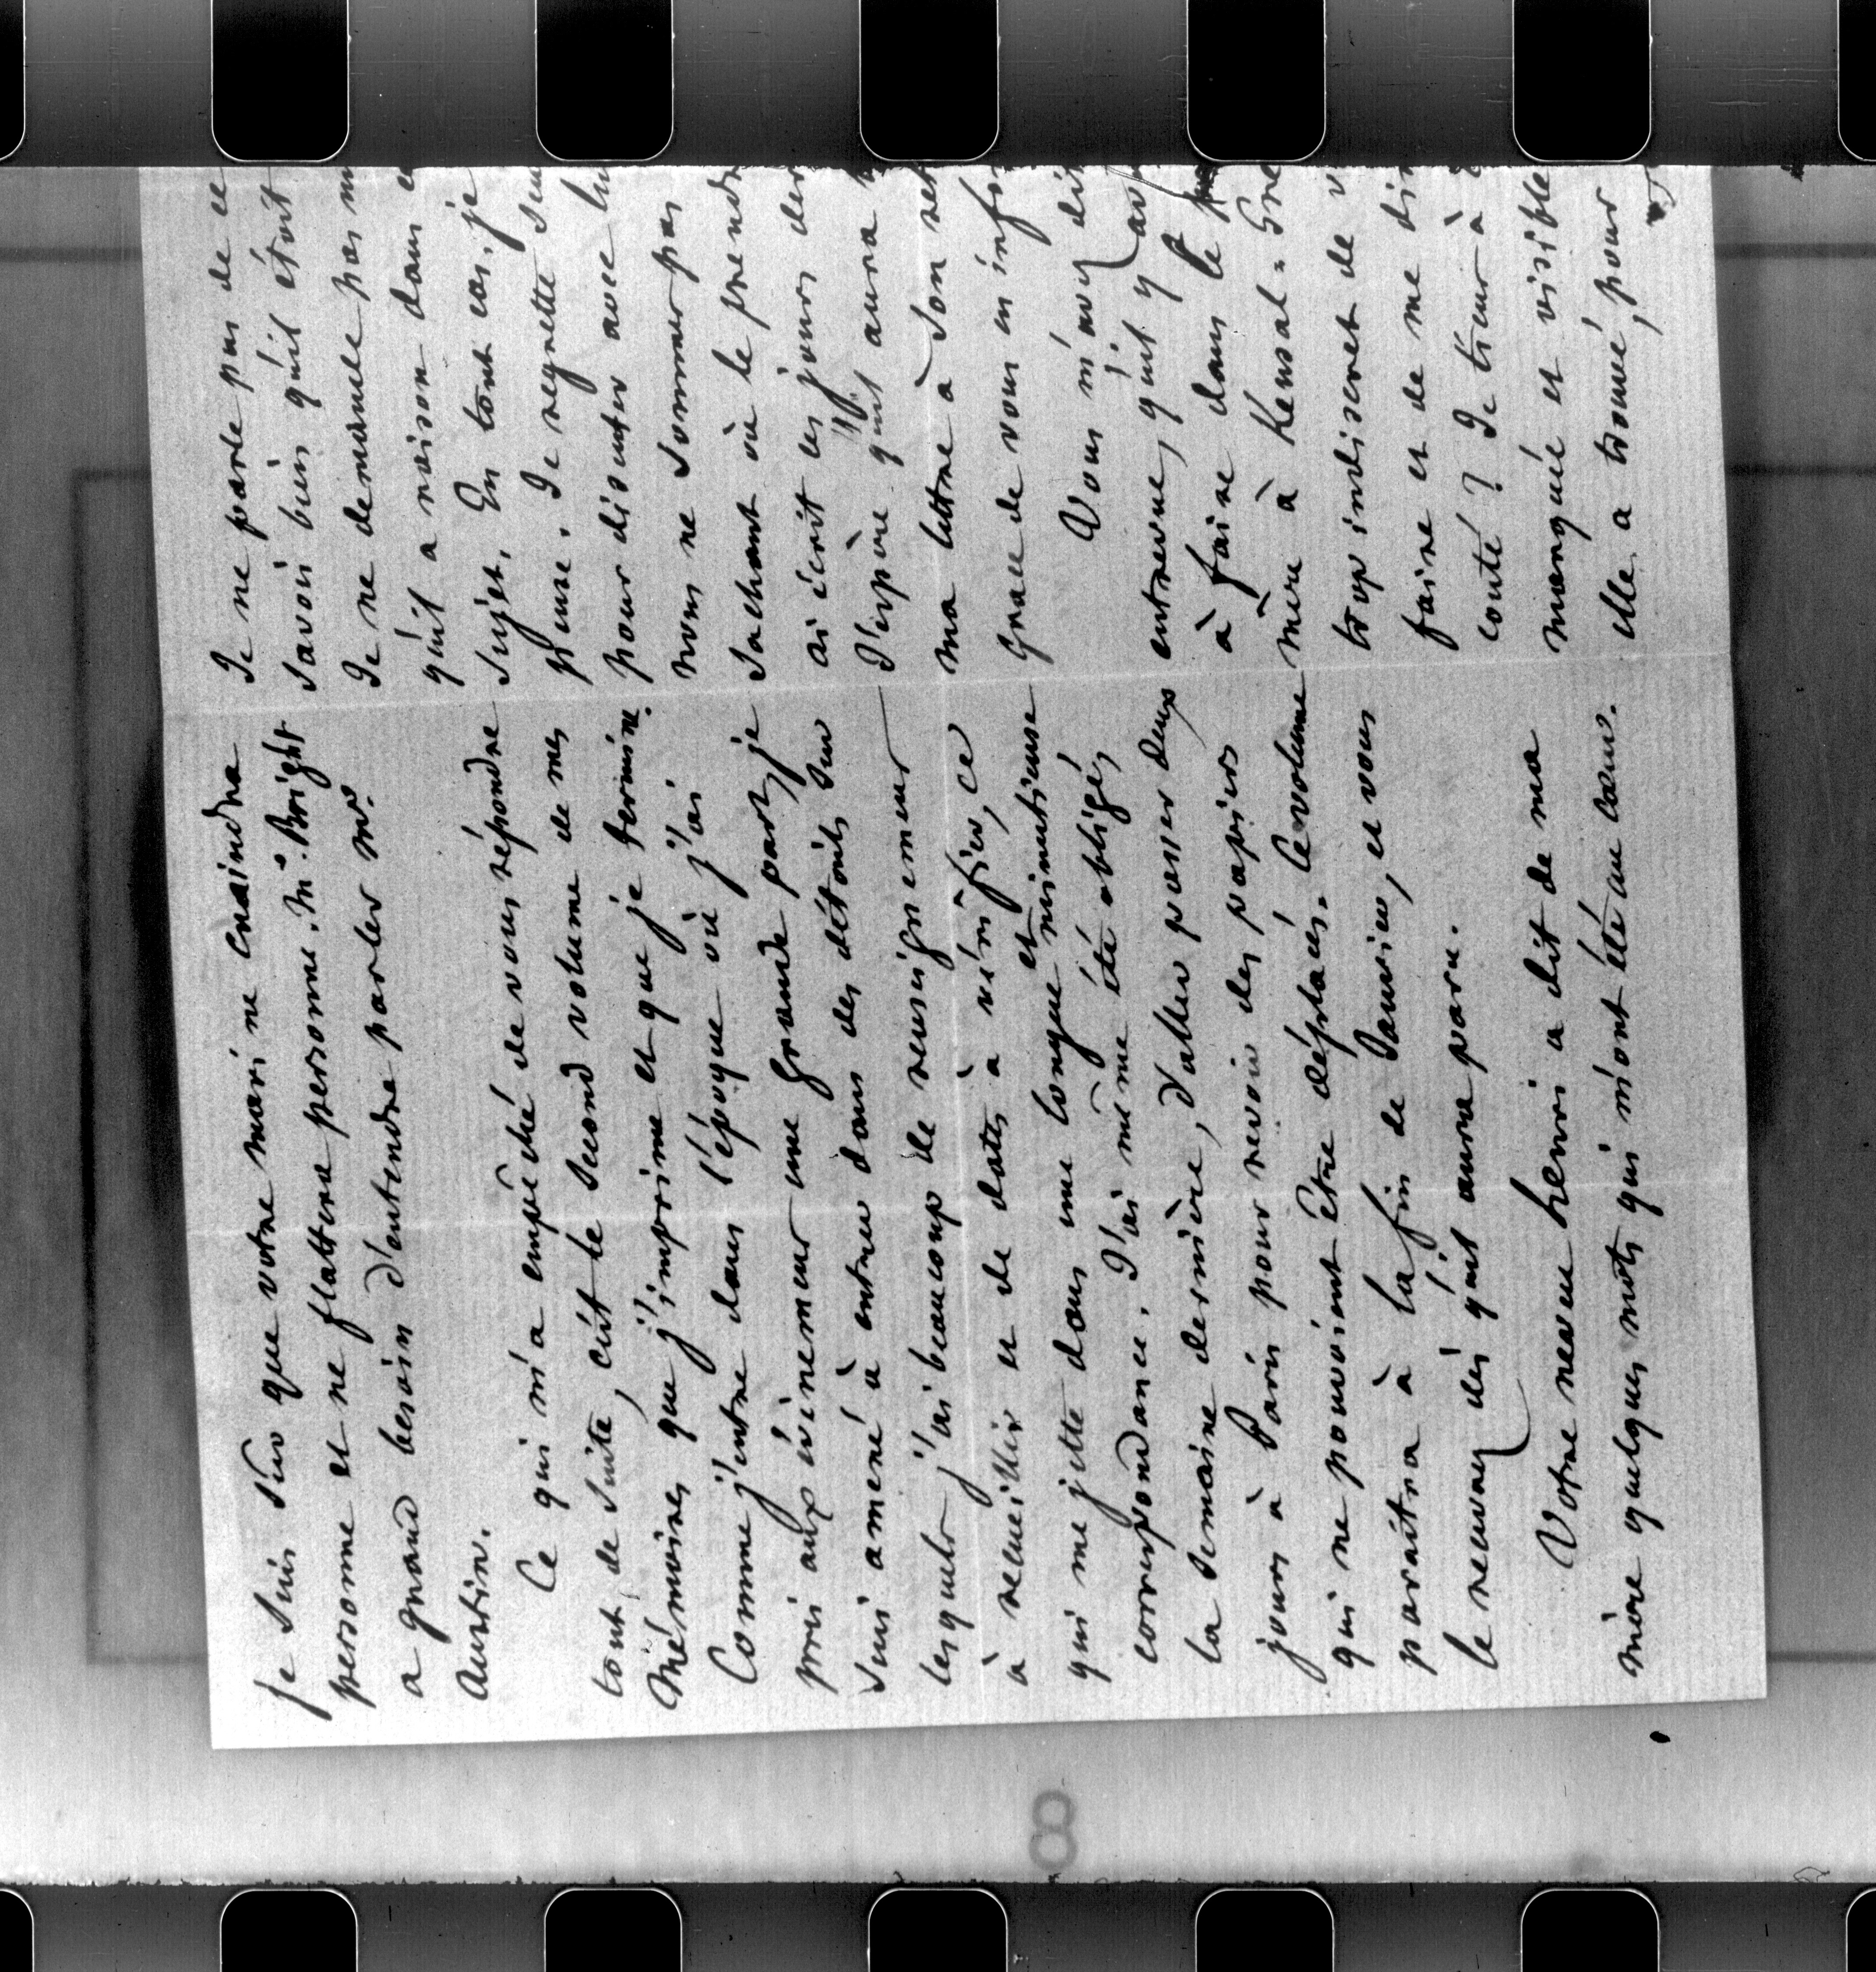 je suis sûr que votre mari ne craindra
personne et ne flattera personne. Mr. Bright
a grand besoin d'entendre parler Mr.
Austin.
Ce qui m'a empêché de vous répondre
tout de suite, c'est le second volume de mes
Mémoires que j'imprime et que je termine.
Comme j'entre dans l'époque où j'ai
pris aux évènemens une grande part, je
suis amené à entrer dans des détails sur
lesquels j'ai beaucoup de renseignemens
à recueillir et de dates à vérifier, ce
qui me jette dans une longue et minutieuse
correspondance. J'ai même été obligé,
la semaine dernière, d'aller passer deux
jours à Paris pour revoir des papiers
qui ne pouvoient être déplacés. Ce volume
paraîtra à la fin de Janvier, et vous
le recevrez dès qu'il aura paru.
Votre neveu henri a dit de ma
mère quelques mots qui m'ont été au cœur.
Je ne parle pas de ce
savoir bien qu'il étoit
Je ne demande pas m
qu'il a raison dans c
sujet. En tout cas, je
pense. Je regrette
pour discuter avec lu
nous ne sommes pas
Sachant où le prendr
ai écrit ces jours der
J'espère qu'il aura
ma lettre à son ret
grace de vous en inf
Vous m'avez dit
entrevue, qu'il y av
à faire dans le
mère à Kensal-Gre
trop indiscret de v
faire et de me dir
coûté ? Je tiens à
marquée et visible
elle a trouvé, pour
8